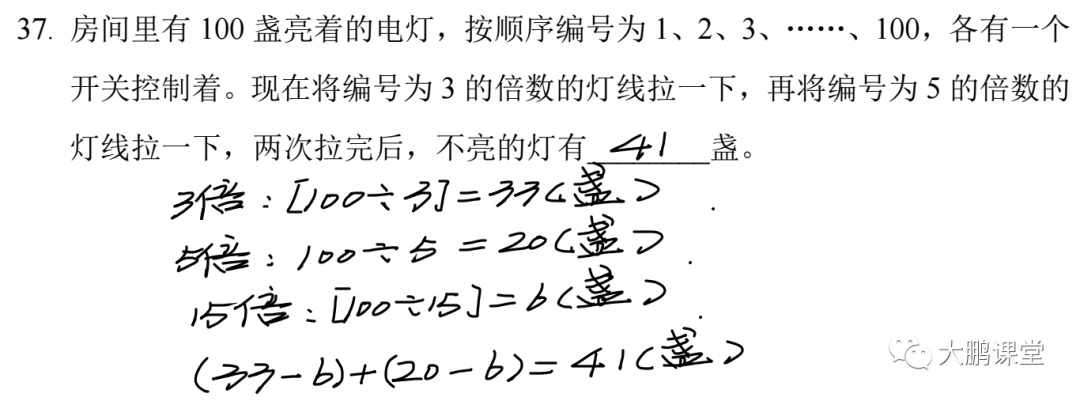 37. 房间里有 100 盏亮着的电灯，按顺序编号为 1、2、3、……、100，各有一个
开关控制着。现在将编号为 3 的倍数的灯线拉一下，再将编号为 5 的倍数的
灯线拉一下，两次拉完后，不亮的灯有 41 盏。
3倍：[100÷3]=33(盏)
5倍：100÷5=20(盏)
15倍：[100÷15]=6(盏)
(33-6)+(20-6)=41(盏)
大鹏课堂